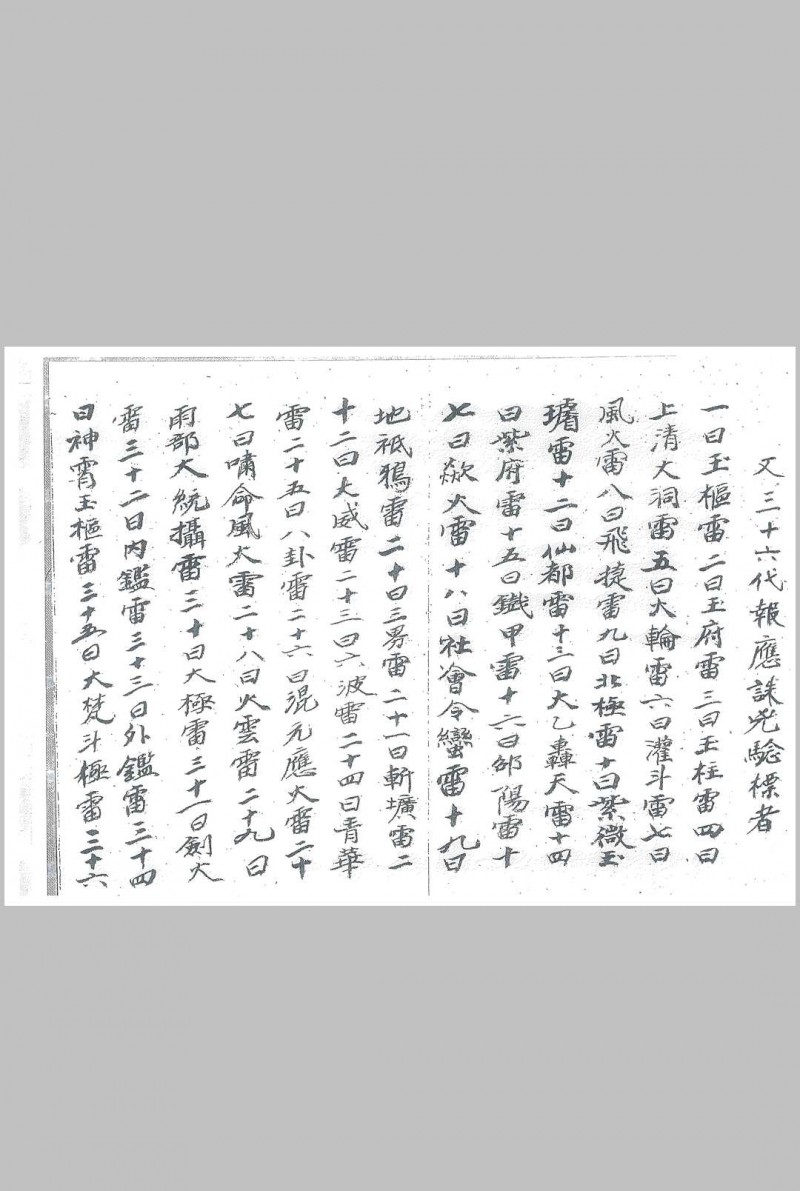 又三十六代報應誅兇驗標者
一曰玉樞雷二曰玉府雷三曰玉柱雷四曰
上清大洞雷五曰火輪雷六曰灌斗雷七曰
風火雷八曰飛捷雷九曰北極雷十曰紫微玉
雷十二曰仙都雷十三曰太乙轟天雷十四
曰紫府雷十五曰鐵甲雷十六曰邵陽雷十
七曰歘火雷十八曰社會令蠻雷十九曰
地祇鴉雷二十曰三界雷二十一曰斬壙雷二
十二曰大威雷二十三曰六波雷二十四曰青華
雷二十五曰八卦雷二十六曰混元應火雷二十
七曰嘯命風大雷二十八曰火雲雷二十九曰
雨部大統攝雷三十曰大極雷三十一曰劍火
雷三十二曰內鑑雷三十三曰外鑑雷三十四
曰神霄玉樞雷三十五曰大梵斗極雷三十六